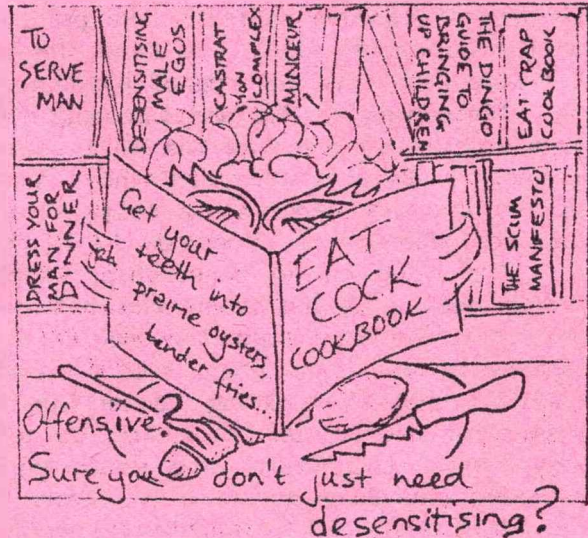 TO
SERVE
MAN
DESENSITISING
MALE
EGOS
CASTRAT
ION
COMPLEX
MINCEUR
THE DINGO
GUIDE TO
BRINGING
UP CHILDREN
EAT CRAP
COOK BOOK
DRESS YOUR
MAN FOR
DINNER
THE SCUM
MANIFESTO
Get your
teeth into
prairie oysters,
tender fries...
EAT
COCK
COOKBOOK
Offensive?
Sure you don't just need
desensitising?